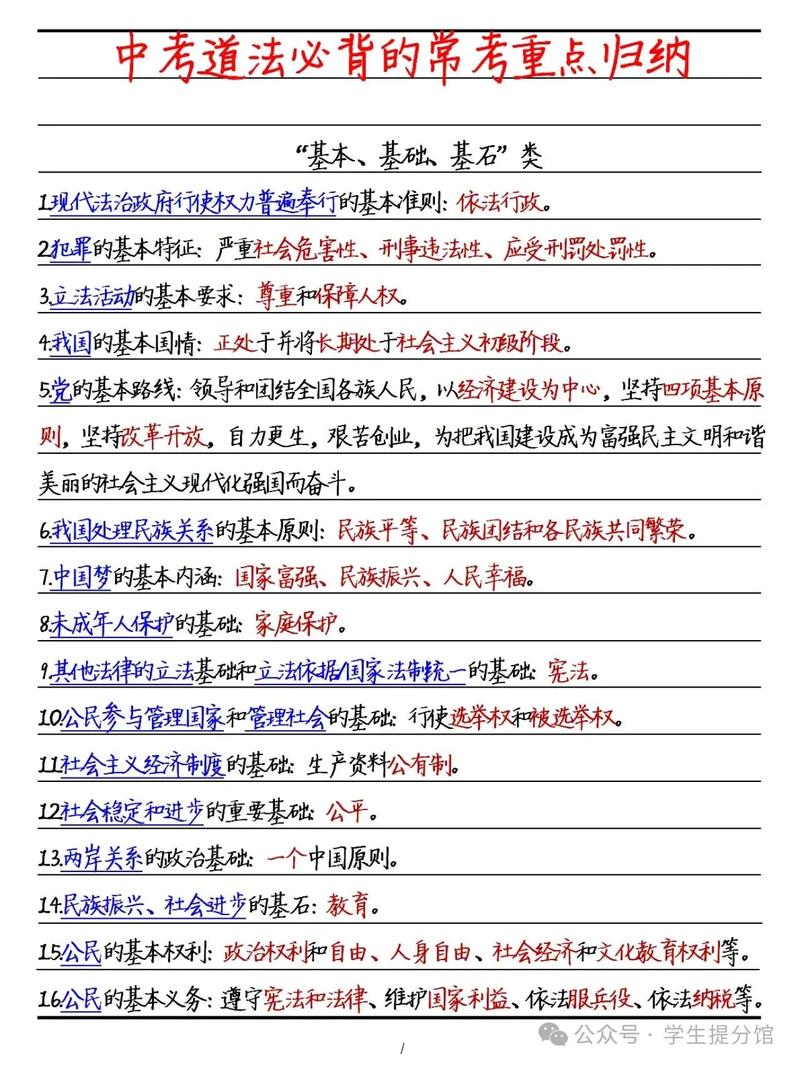 中考道法必背的常考重点归纳
“基本、基础、基石”类
1.现代法治政府行使权力普遍奉行的基本准则：依法行政。
2.犯罪的基本特征：严重社会危害性、刑事违法性、应受刑罚处罚性。
3.立法活动的基本要求：尊重和保障人权。
4.我国的基本国情：正处于并将长期处于社会主义初级阶段。
5.党的基本路线：领导和团结全国各族人民，以经济建设为中心，坚持四项基本原
则，坚持改革开放，自力更生，艰苦创业，为把我国建设成为富强民主文明和谐
美丽的社会主义现代化强国而奋斗。
6.我国处理民族关系的基本原则：民族平等、民族团结和各民族共同繁荣。
7.中国梦的基本内涵：国家富强、民族振兴、人民幸福。
8.未成年人保护的基础：家庭保护。
9.其他法律的立法基础和立法依据/国家法制统一的基础：宪法。
10.公民参与管理国家和管理社会的基础：行使选举权和被选举权。
11.社会主义经济制度的基础：生产资料公有制。
12.社会稳定和进步的重要基础：公平。
13.两岸关系的政治基础：一个中国原则。
14.民族振兴、社会进步的基石：教育。
15.公民的基本权利：政治权利和自由、人身自由、社会经济和文化教育权利等。
16.公民的基本义务：遵守宪法和法律、维护国家利益、依法服兵役、依法纳税等。
公众号·学生提分馆
/